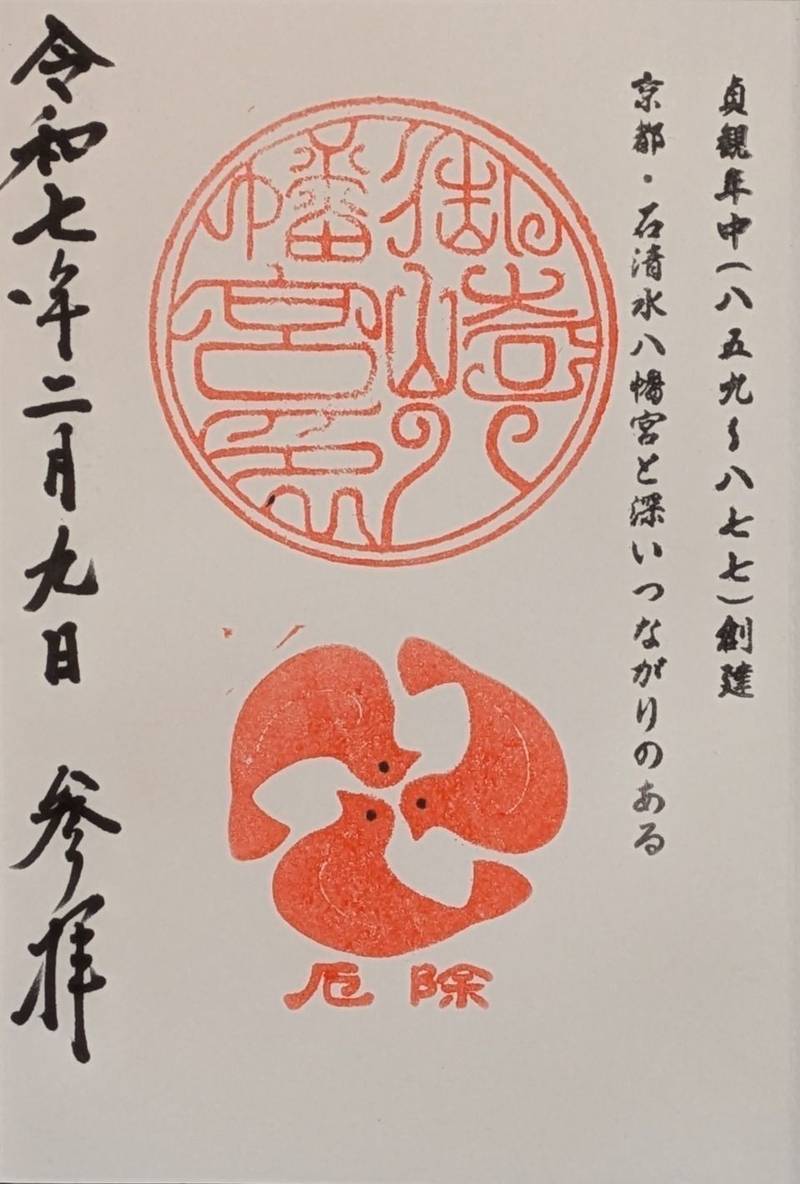 貞観年中(八五九〜八七七)創建
京都・石清水八幡宮と深いつながりのある
御崎八
幡宮印
厄除
令和七年二月九日 参拝